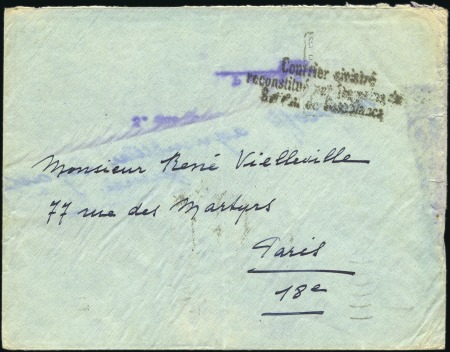 Courrier sinistré
reconstitué par les soins du
de Casablanca
Monsieur René Vielleville
77 rue des Martyrs
Paris
18e